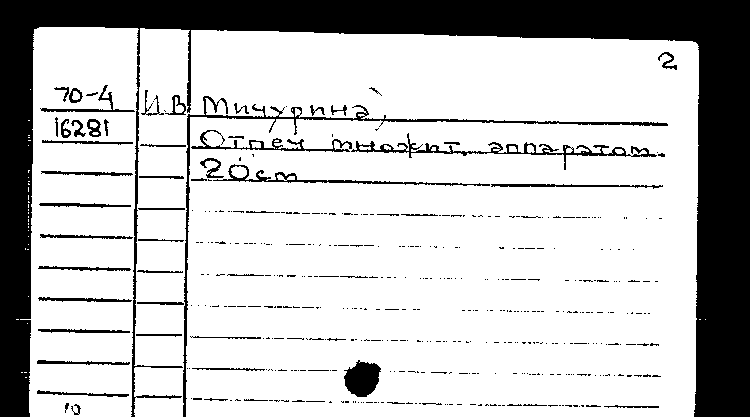 2
70-4 И.В. Мичурина,
16281 Отпеч множит. аппаратом.
20 см